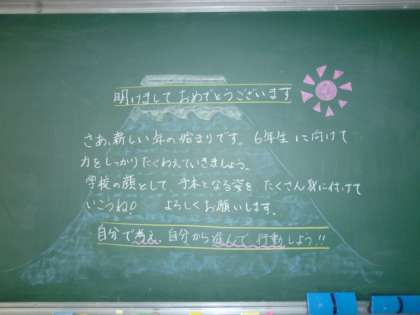 明けましておめでとうございます
さあ、新しい年の始まりです。6年生に向けて
力をしっかりたくわえていきましょう。
学校の顔として、手本となる姿をたくさん身に付けて
いこうね! よろしくお願いします。
自分で考え、自分から進んで行動しよう!!